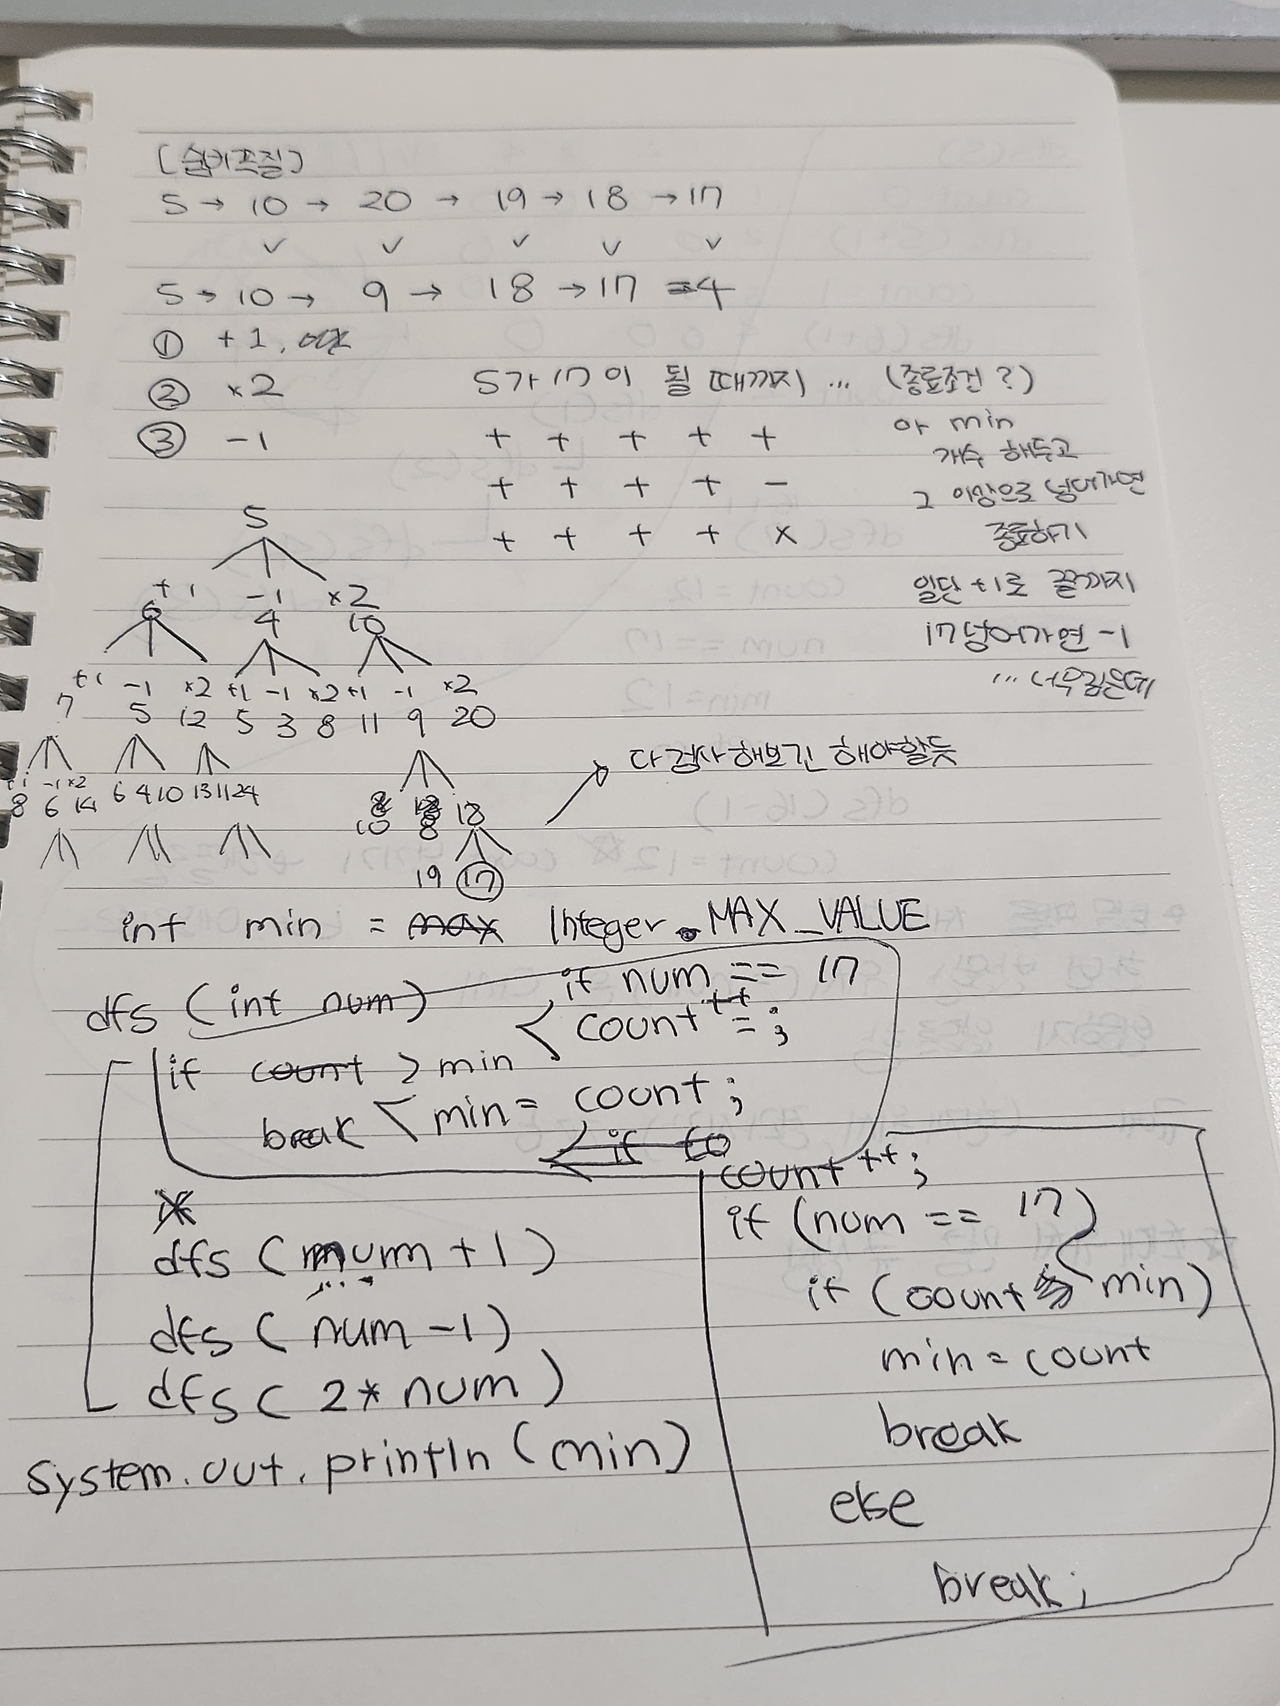 [숨바꼭질]
5 → 10 → 20 → 19 → 18 → 17
✓ ✓ ✓ ✓ ✓
5 → 10 → 9 → 18 → 17 = 4
① +1,
② ×2 5가 17이 될 때까지 ... (종료조건?)
③ -1 + + + + + 아 min
개수 해두고
+ + + + - 그 이상으로 넘어가면
+ + + + × 종료하기
일단 +1로 끝까지
17넘어가면 -1
... 너무김은데
5
+1 -1 ×2
6 4 10
+1 -1 ×2 +1 -1 ×2 +1 -1 ×2
7 5 12 5 3 8 11 9 20
→ 다 검사해보긴 해야할듯
+1 -1 ×2
8 6 14 6 4 10 13 11 24 10 8 18
19 17
int min = max Integer.MAX_VALUE
dfs (int num) if num == 17
count++ = ;
if count > min
break < min = count;
if to
count++;
if (num == 17)
dfs (num+1)
if (count min)
dfs (num-1)
min = count
dfs ( 2* num )
break
system.out.println(min)
else
break;